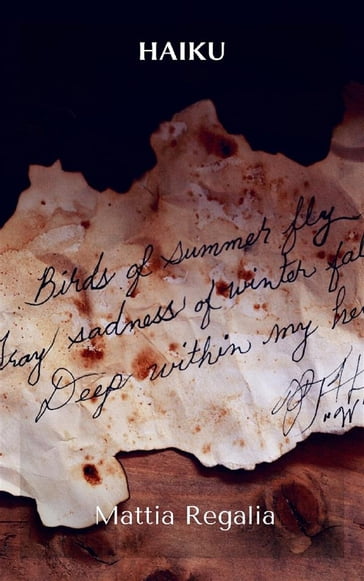 HAIKU
Birds of summer fly
Gray sadness of winter fal
Deep within my he
"W"
Mattia Regalia